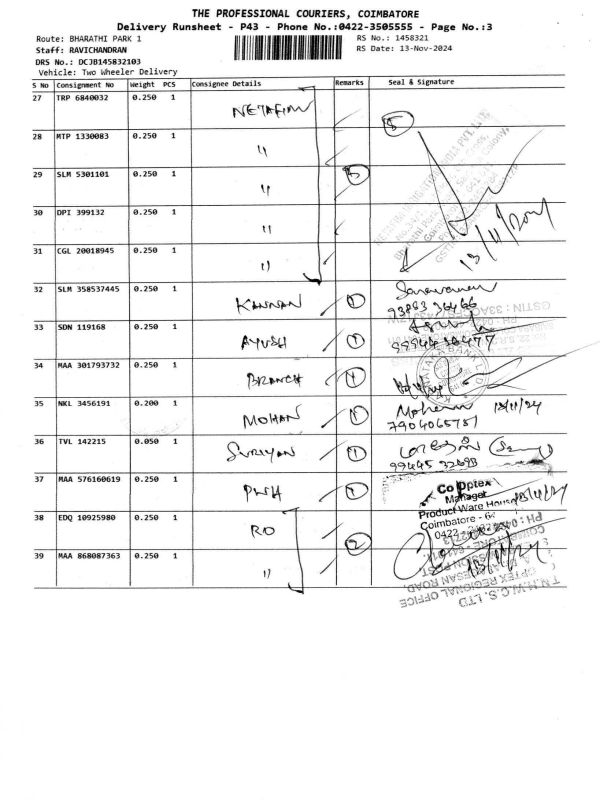 THE PROFESSIONAL COURIERS, COIMBATORE
Delivery Runsheet - P43 - Phone No.:0422-3505555 - Page No.:3
Route: BHARATHI PARK 1 RS No.: 1458321
Staff: RAVICHANDRAN RS Date: 13-Nov-2024
DRS No.: DCJB145832103
Vehicle: Two Wheeler Delivery
S No Consignment No Weight PCS Consignee Details Remarks Seal & Signature
27 TRP 6840032 0.250 1 NETAFIM 5
28 MTP 1330083 0.250 1 "
29 SLM 5301101 0.250 1 " 5
30 DPI 399132 0.250 1 "
31 CGL 20018945 0.250 1 " 13/11/2024
32 SLM 358537445 0.250 1 KANNAN 1 Saravanan
33 SDN 119168 0.250 1 AYUSH 1
34 MAA 301793732 0.250 1 BRANCH 1
KARNATAKA BANK LTD
35 NKL 3456191 0.200 1 MOHAN 1 13/11/24
7904065781
36 TVL 142215 0.050 1 SURIYAN 1
37 MAA 576160619 0.250 1 PWH 1
Co Optex
Manager
Product Ware House 13/11/24
Coimbatore -
38 EDQ 10925980 0.250 1 RO 2
39 MAA 868087363 0.250 1 " 13/11/24
OPTEX REGIONAL OFFICE
T.N.H.W.C.S. LTD